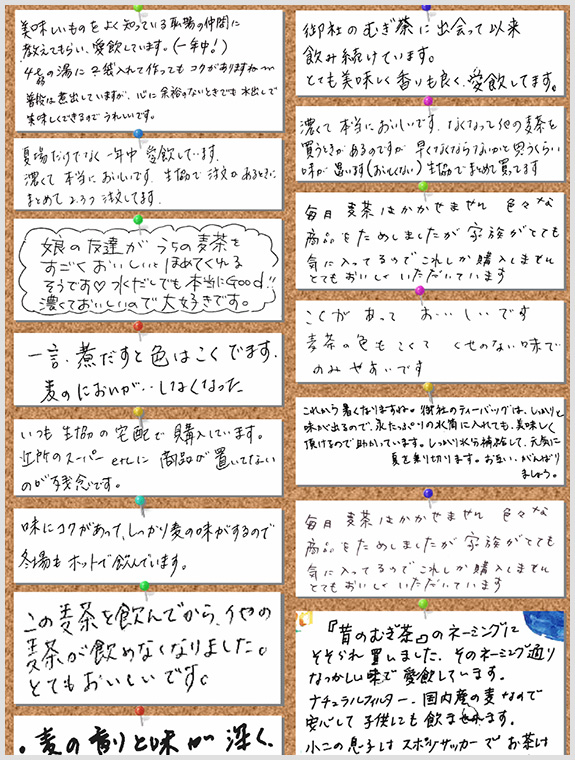 美味しいものをよく知っている職場の仲間に
教えてもらい、愛飲しています。(一年中!)
4㍑の湯に2袋入れて作ってもコクがありますね〜
普段は煮出していますが、心に余裕のないときでも水出しで
美味しくできるのでうれしいです。
夏場だけでなく一年中愛飲しています。
濃くて本当においしいです。生協で注文があるときに
まとめて2、3つ注文してます。
娘の友達がうちの麦茶を
すごくおいしいとほめてくれる
そうです♡水だしでも本当にGood!!
濃くておいしいので大好きです。
一言、煮だすと色はこくでます。
麦のにおいが‥しなくなった
いつも生協の宅配で購入しています。
近所のスーパーetcに商品が置いてない
のが残念です。
味にコクがあって、しっかり麦の味がするので
冬場もホットで飲んでいます。
この麦茶を飲んでから、他の
麦茶が飲めなくなりました。
とてもおいしいです。
・麦の香りと味が深く、
御社のむぎ茶に出会って以来
飲み続けています。
とても美味しく香りも良く、愛飲してます。
濃くて本当においしいです。なくなって他の麦茶を
買うときがあるのですが早くなくならないかと思うくらい
味が違います(おいしくない)生協でまとめて買ってます
毎日麦茶はかかせません 色々な
商品をためしましたが家族がとても
気に入ってるのでこれしか購入しません
とてもおいしくいただいています
こくがあっておいしいです
麦茶の色もこくてくせのない味で
のみやすいです
これから暑くなりますね。御社のティーバッグは、しっかりと
味が出るので、氷たっぷりの水筒に入れても、美味しく
頂けるので助かっています。しっかり水分補給して、元気に
夏を乗り切ります。お互い、がんばり
ましょう。
毎日麦茶はかかせません 色々な
商品をためしましたが家族がとても
気に入ってるのでこれしか購入しません
とてもおいしくいただいています
『昔のむぎ茶』のネーミングに
そそられ買いました。そのネーミング通り
なつかしい味で愛飲しています。
ナチュラルフィルター、国内産の麦なので
安心して子供にも飲ませれます。
小二の息子はスポ少サッカーでお茶は